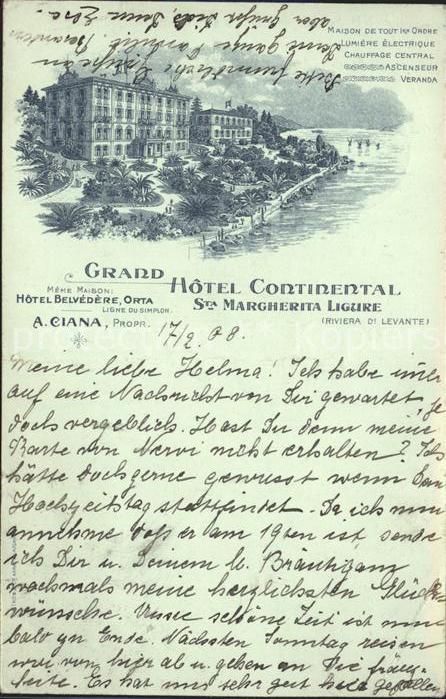 MAISON DE TOUT 1ER ORDRE
LUMIÈRE ÉLECTRIQUE
CHAUFFAGE CENTRAL
ASCENSEUR
VERANDA
GRAND HÔTEL CONTINENTAL
STA MARGHERITA LIGURE
(RIVIERA DI LEVANTE)
MÊME MAISON:
HÔTEL BELVÉDÈRE, ORTA
LIGNE DU SIMPLON
A. CIANA, PROPR.
17/2. 08.
Meine liebe Helma! Ich habe
auf eine Nachricht von Dir gewartet je
doch vergeblich. Hast Du denn meine
Karte von Nervi nicht erhalten? Ich
hätte doch gerne gewusst wenn Dein
Hochzeitstag stattfindet. Da ich nun
annehme daß er am 19ten ist sende
ich Dir u. Deinem lb. Bräutigam
nochmals meine herzlichsten Glück
wünsche. Unsere schöne Zeit ist nun
bald zu Ende. Nächsten Sonntag reisen
wir von hier ab u. gehen an die
Es hat uns sehr gut hier gefallen
Bitte freundliche Grüsse an
Deine ganze
aber Grüsse Dich, Deine Elsa.